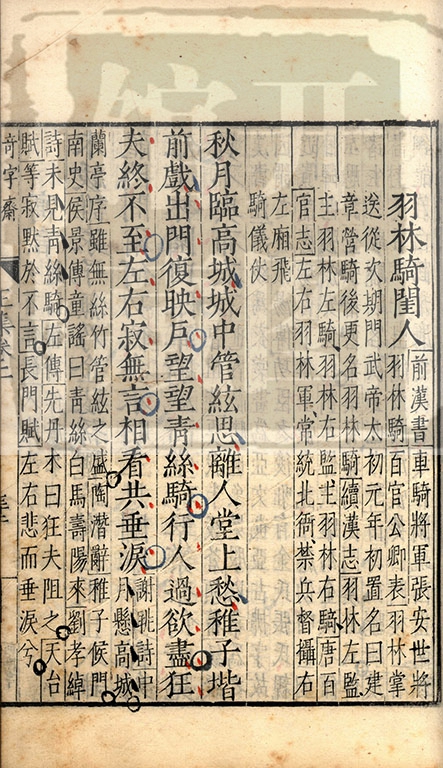 羽林騎閨人前漢書車騎將軍張安世將
羽林騎百官公卿表羽林掌
送從次期門武帝太初元年初置名曰建
章營騎後更名羽林騎續漢志羽林左監
主羽林左騎羽林右監主羽林右騎唐百
官志左右羽林軍常統北衙禁兵督攝右
左廂飛
騎儀仗
秋月臨高城城中管絃思離人堂上愁稚子堦
前戲出門復映戶望望青絲騎行人過欲盡狂
夫終不至左右寂無言相看共垂淚謝朓詩中
月懸高城
蘭亭序雖無絲竹管絃之盛陶潛辭稚子候門
南史侯景傳童謠曰青絲白馬壽陽來劉孝綽
詩未見青絲騎左傳先丹木曰狂夫阻之天台
賦等寂默於不言長門賦左右悲而垂淚兮
奇字齋